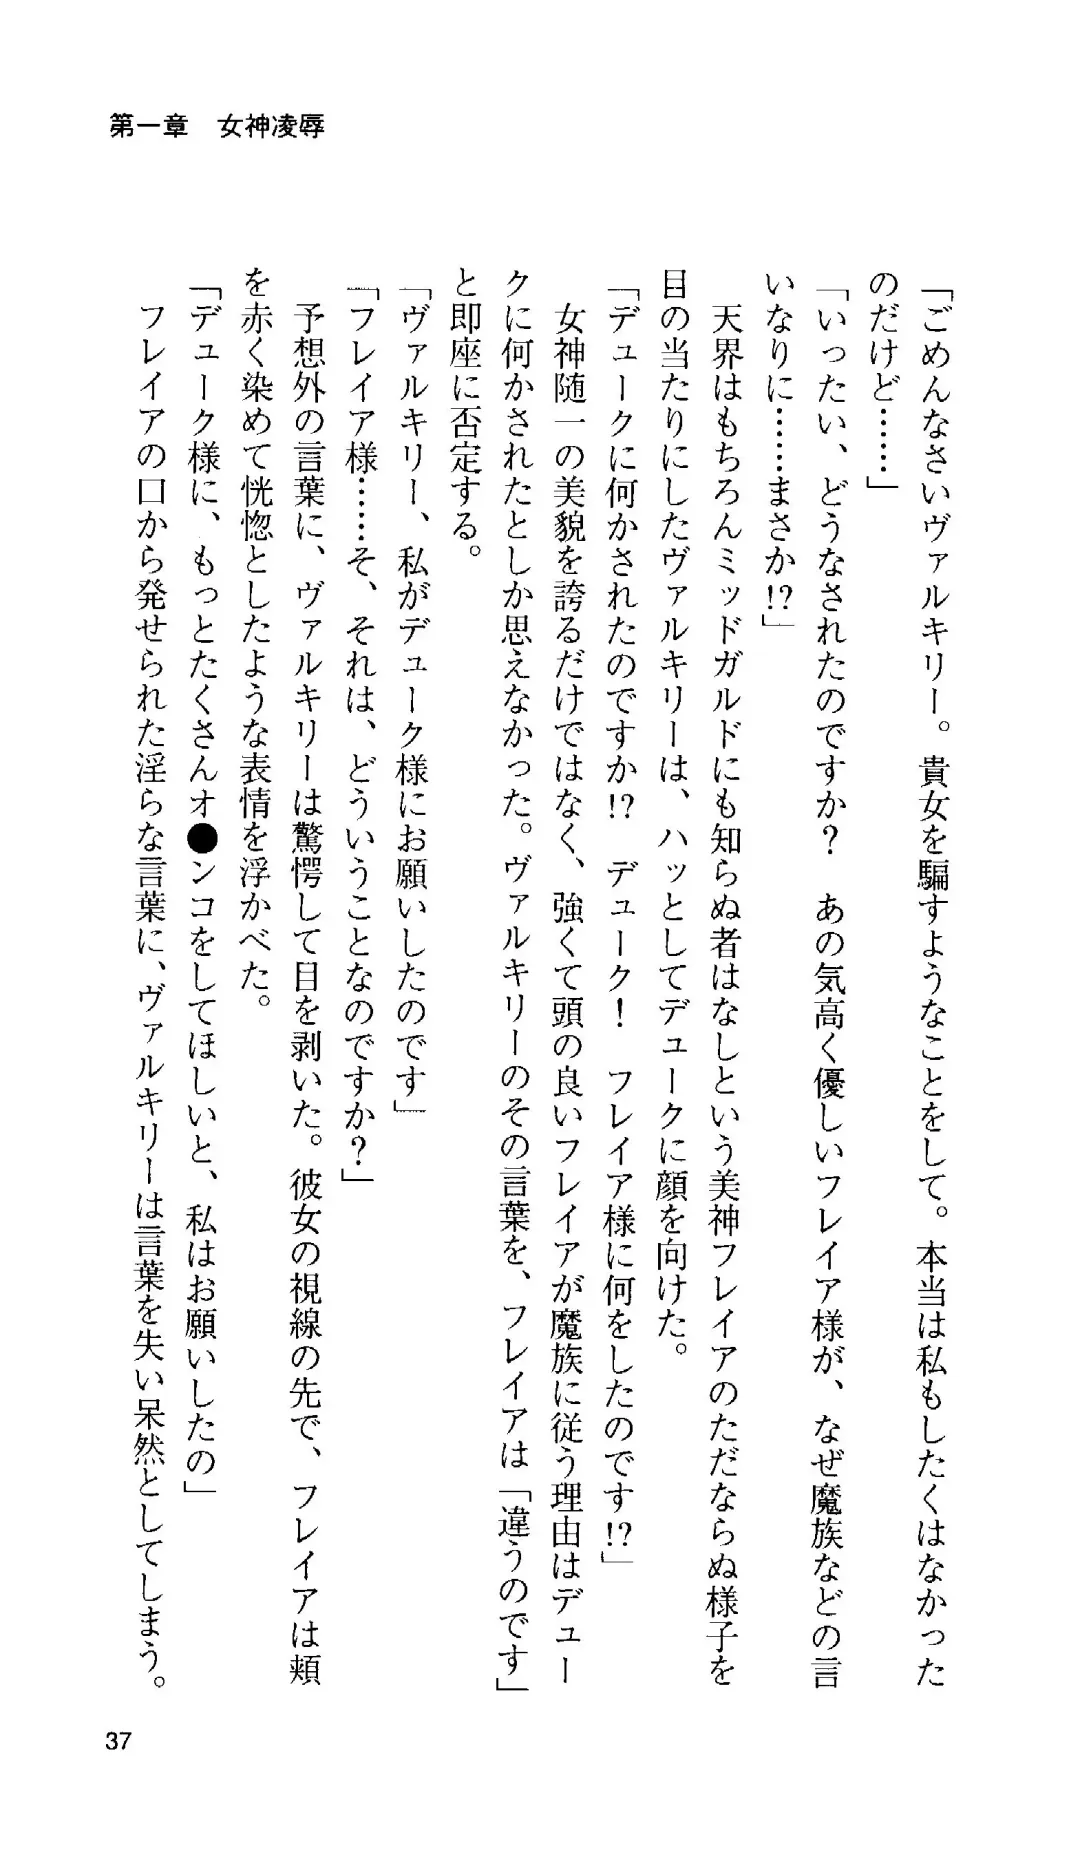 第一章　女神凌辱
「ごめんなさいヴァルキリー。貴女を騙すようなことをして。本当は私もしたくはなかった
のだけど……」
「いったい、どうなされたのですか？　あの気高く優しいフレイア様が、なぜ魔族などの言
いなりに……まさか!?」
　天界はもちろんミッドガルドにも知らぬ者はなしという美神フレイアのただならぬ様子を
目の当たりにしたヴァルキリーは、ハッとしてデュークに顔を向けた。
「デュークに何かされたのですか!?　デューク！　フレイア様に何をしたのです!?」
　女神随一の美貌を誇るだけではなく、強くて頭の良いフレイアが魔族に従う理由はデュー
クに何かされたとしか思えなかった。ヴァルキリーのその言葉を、フレイアは「違うのです」
と即座に否定する。
「ヴァルキリー、私がデューク様にお願いしたのです」
「フレイア様……そ、それは、どういうことなのですか？」
　予想外の言葉に、ヴァルキリーは驚愕して目を剥いた。彼女の視線の先で、フレイアは頬
を赤く染めて恍惚としたような表情を浮かべた。
「デューク様に、もっとたくさんオ●ンコをしてほしいと、私はお願いしたの」
　フレイアの口から発せられた淫らな言葉に、ヴァルキリーは言葉を失い呆然としてしまう。
37